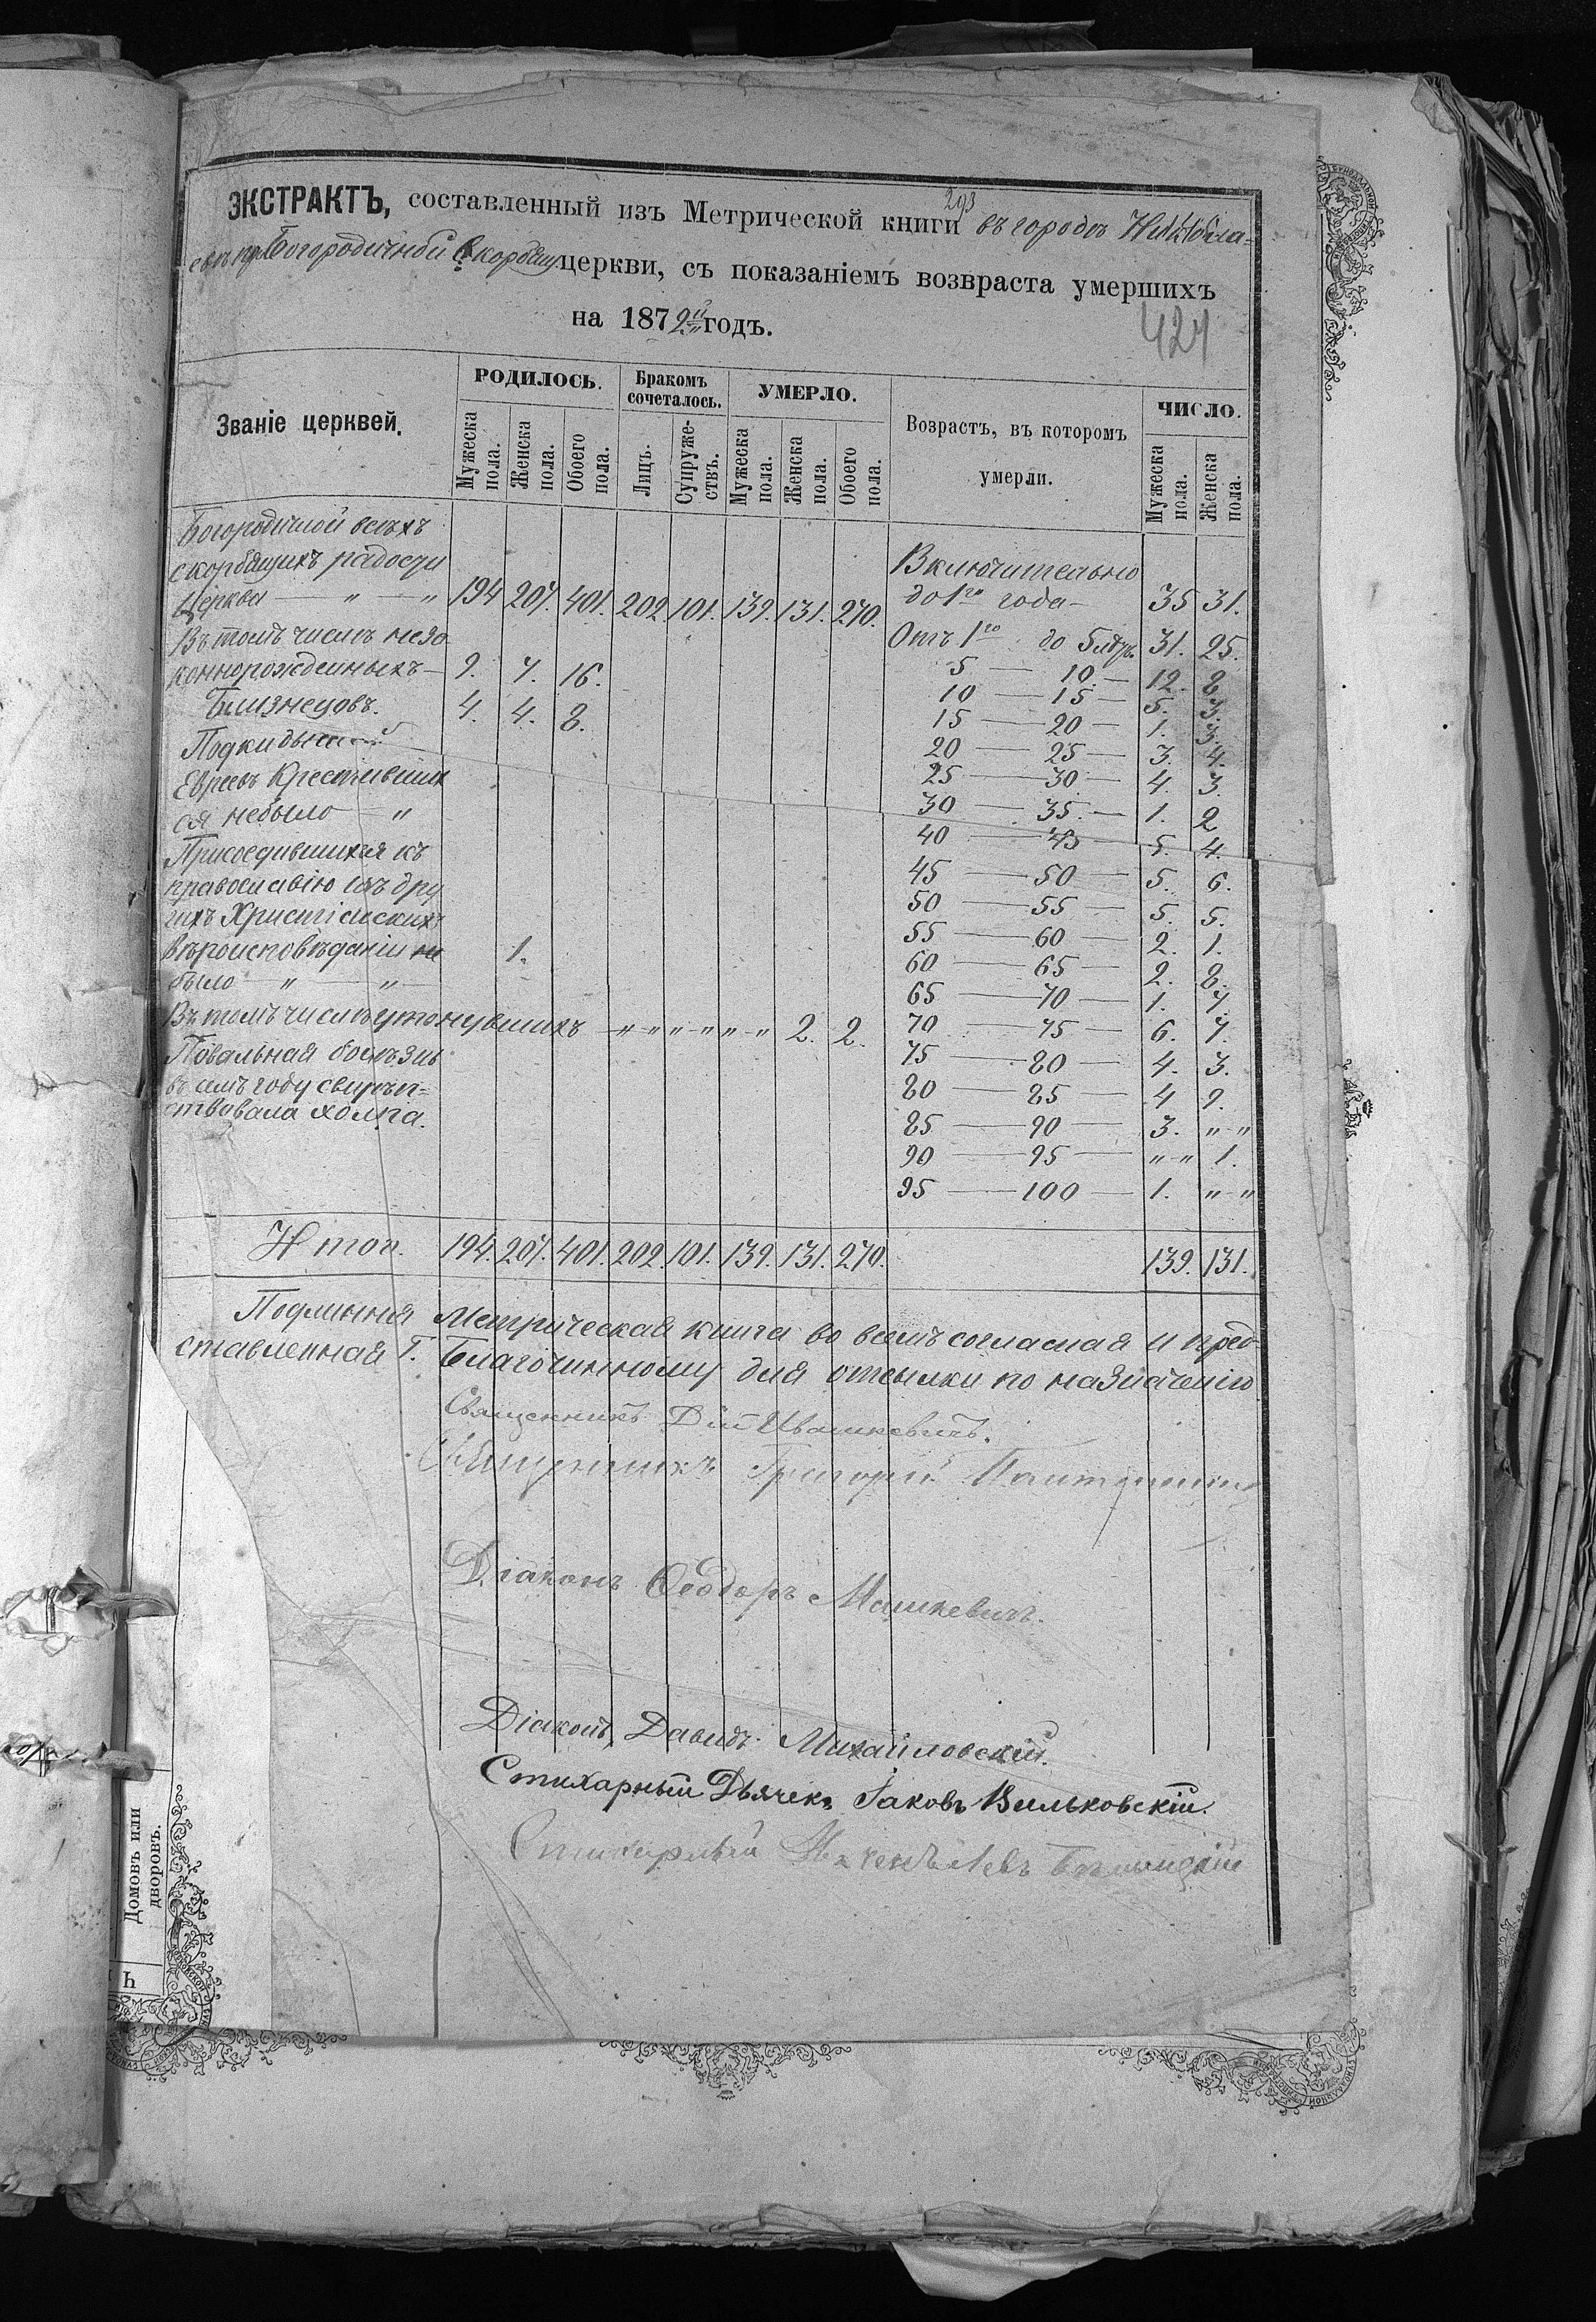 293
ЭКСТРАКТЪ, составленный изъ Метрической книги въ городѣ Никола-
евѣ при Богородичной Скорбящ. церкви, съ показаніемъ возвраста умершихъ
на 1872й годъ.
424
Званіе церквей.
РОДИЛОСЬ.
Мужеска пола.
Женска пола.
Обоего пола.
Бракомъ сочеталось.
Лицъ.
Супружествъ.
УМЕРЛО.
Мужеска пола.
Женска пола.
Обоего пола.
Возрастъ, въ которомъ умерли.
ЧИСЛО.
Мужеска пола.
Женска пола.
Богородичной всѣхъ
скорбящихъ радости
Церква — „ — „ 194 207. 401. 202. 101. 139. 131. 270.
Въ томъ числѣ незо
коннорожденныхъ — 9. 7. 16.
Близнецовъ. 4. 4. 8.
Подкидышей
Евреевъ Крестивших
ся небыло — „
Присоедившихся къ
православію изъ дру
гихъ Христіанскихъ
вѣроисповѣданіи не 1.
было — „ — „ —
Въ томъ числѣ утонувшихъ — „ „ „ „ „ „ 2. 2.
Повальная болѣзнь
въ семъ году свирѣп=
ствовала холера.
Включительно
до 1го года — 35 31.
Отъ 1го до 5 лѣтъ. 31. 25.
5 — 10. — 12. 8.
10 — 15 — 5. 3.
15 — 20 — 1. 3.
20 — 25 — 3. 4.
25 — 30 — 4. 3.
30 — 35. — 1. 2
40 — 45 — 5. 4.
45 — 50 — 5. 6.
50 — 55 — 5. 5.
55 — 60 — 2. 1.
60 — 65 — 2. 8.
65 — 70 — 1. 7.
70 — 75 — 6. 7.
75 — 80 — 4. 3.
80 — 85 — 4 9.
85 — 90 — 3. „ „
90 — 95 — „ „ 1.
95 — 100 — 1. „ „
Итого. 194. 207. 401. 202. 101. 139. 131. 270. 139. 131.
Подлинная Метрическая книга во всемъ согласная и пред
ставленная Г. Благочинному для отсылки по назначенію
Священникъ Дій Ивашкевичъ.
Священникъ Григорій
Діаконъ Ѳеодоръ Машкевичъ.
Діаконъ, Давидъ Михайловскій.
Стихарный Дьячекъ Іаковъ Вильковскій.
Стихарный Левъ
Домовъ или
дворовъ.